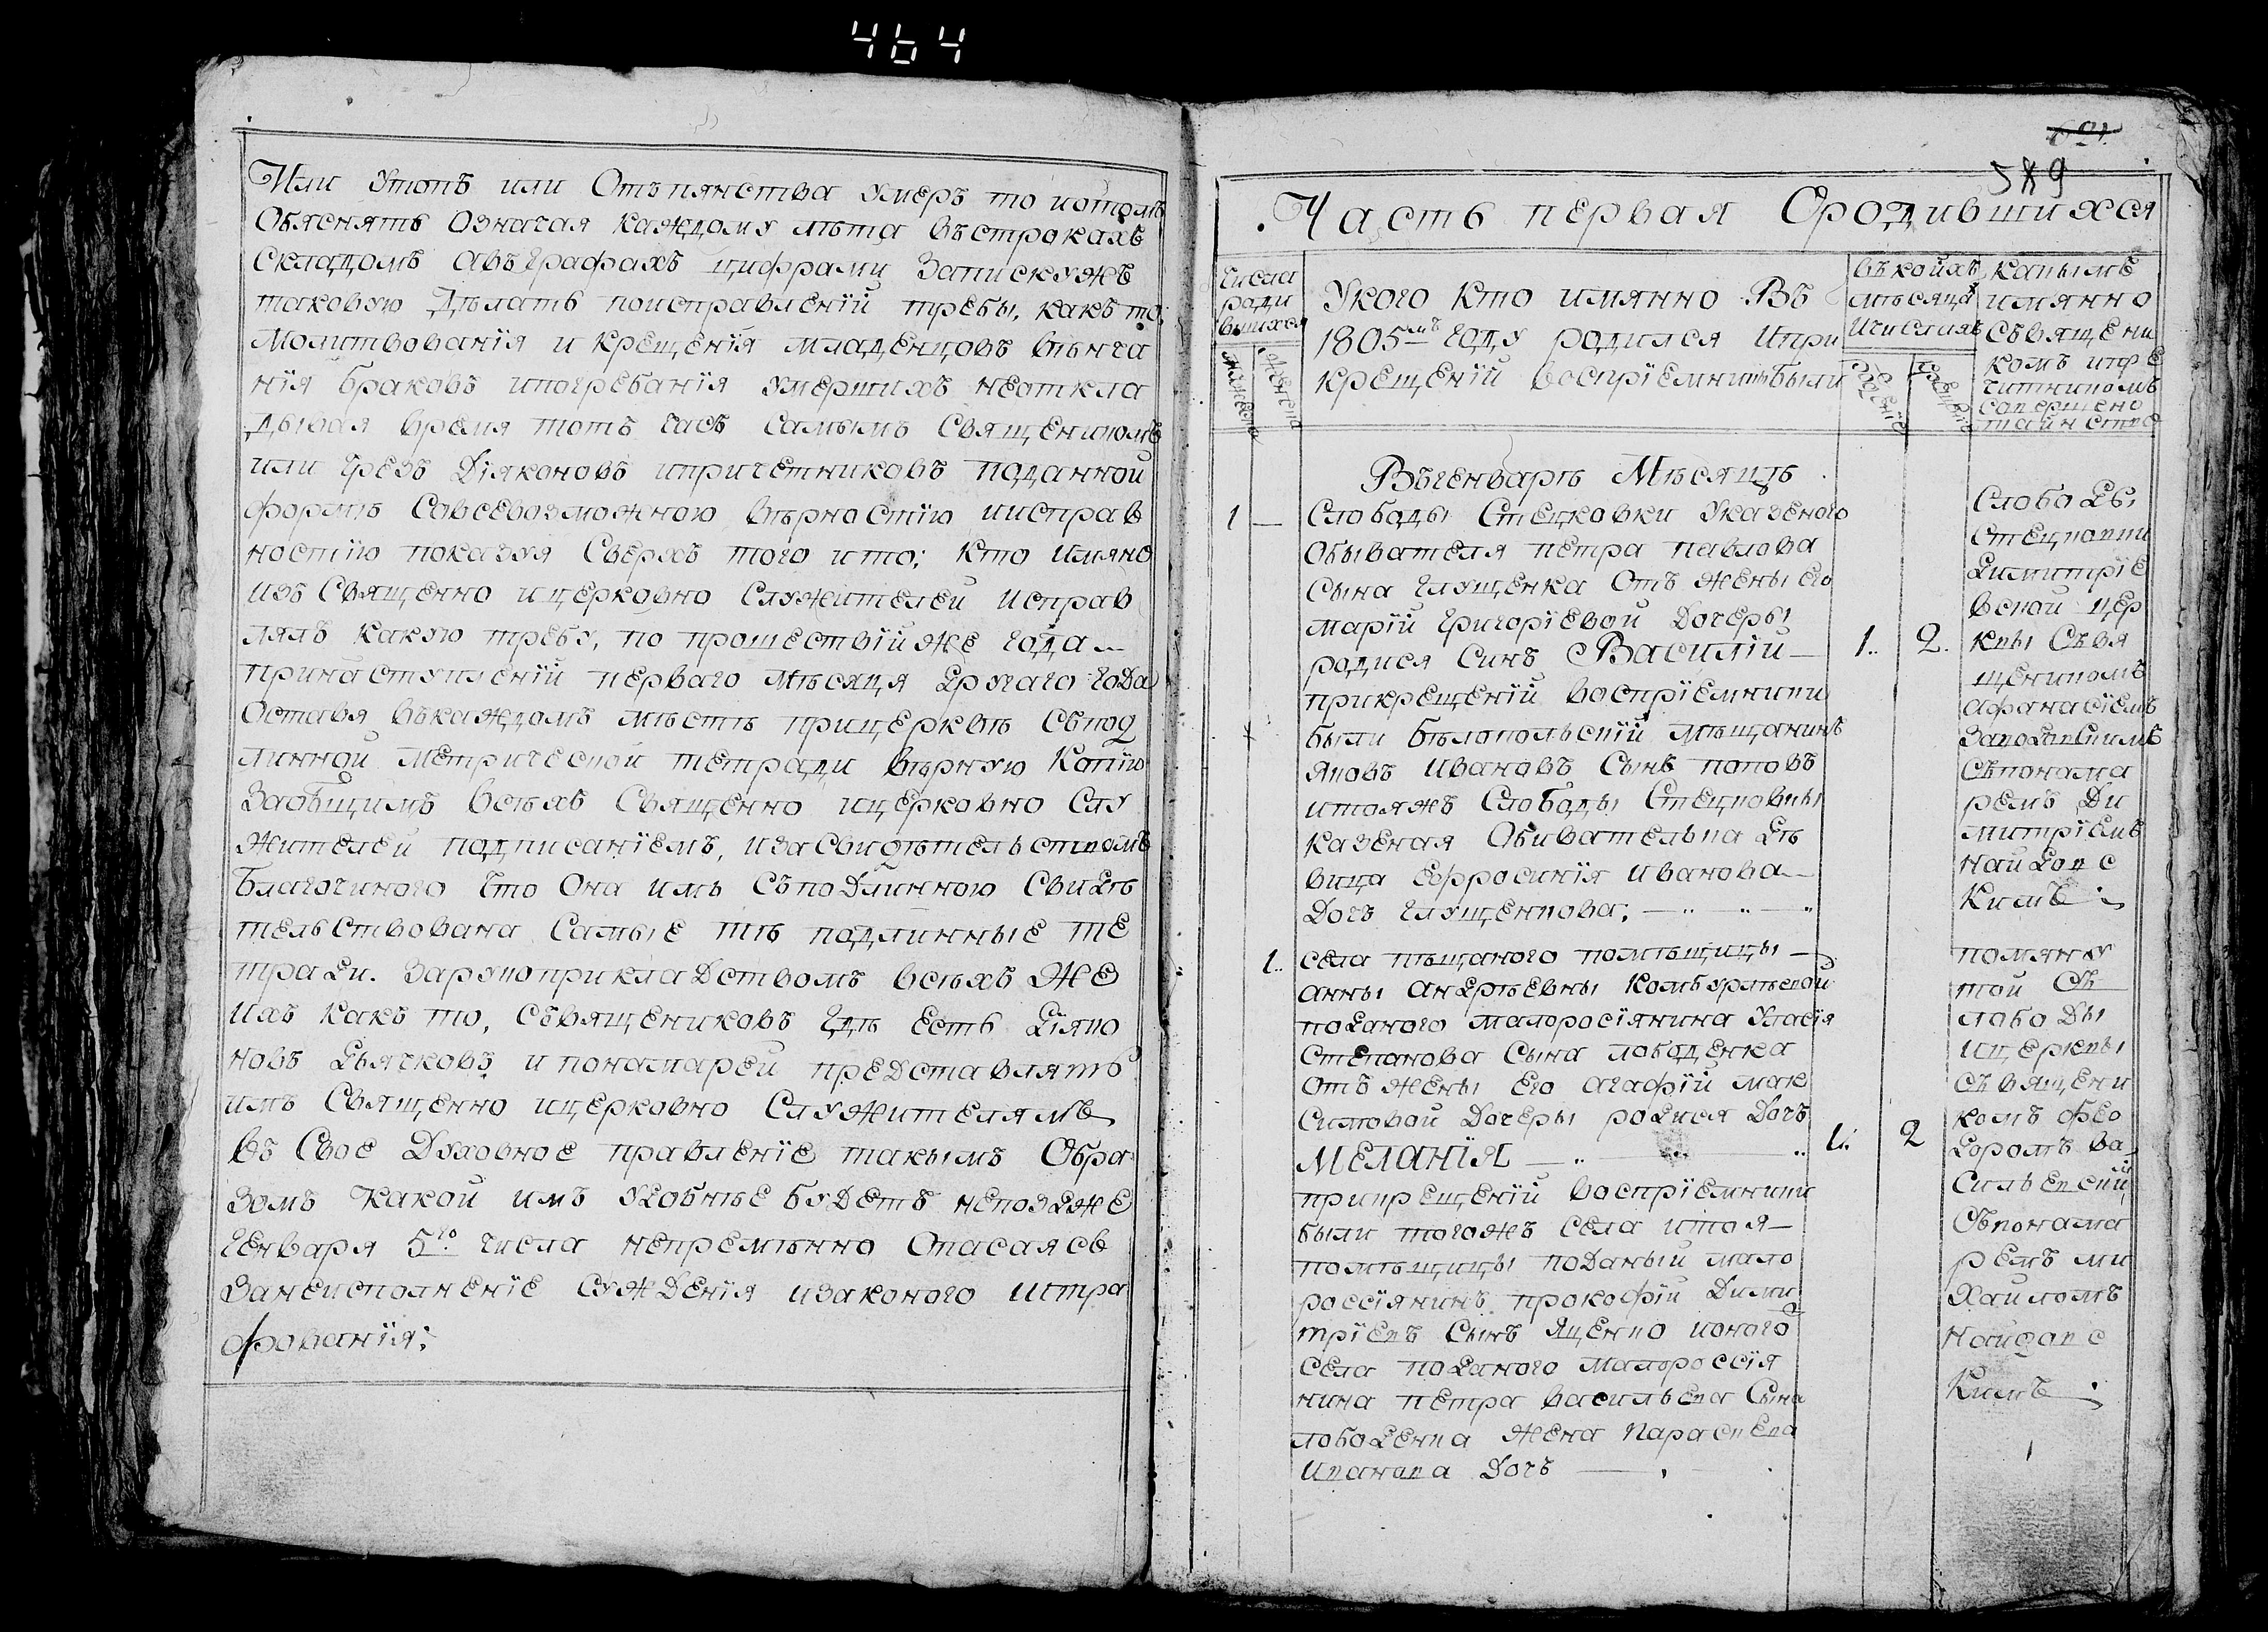 464
Или утопъ или Отъпянства умеръ то иотомъ
Обяснять Означая каждому лѣта въстрокахъ
складомъ авъграфахъ цифрами Запискужъ
таковую дѣлать поисправленїй требы, какъ то,
Молитвованїя и крещенїя младенцовъ вѣнча
нїя браковъ ипогребанїя умершихъ неоткла
дывая время тотъ часъ самымъ Священикомъ
или чрезъ Дїяконовъ ипричетниковъ поданной
формѣ Совсевозможною вѣрностїю иисправ
ностїю показуя Сверхъ того ито; кто имяно
изъ Священно ицерковно служителей исправ
лялъ какую требу, по прошествїйже года
принаступленїй перваго мѣсяця другаго года
Оставя въкаждомъ мѣстѣ прицерквѣ Спод
линной Метрической тетради вѣрную Копїю
Заобщимъ всѣхъ Священно ицерковно Слу
жителей подписанїемъ, изасвидѣтельствомъ
благочиного что Она имъ съподлинною Свидѣ
тельствована Самые тѣ подлинные те
тради. Зарукоприкладствомъ всѣхъ же
ихъ какъ то, съвященниковъ гдѣ есть дїяко
новъ дьячковъ и понамарей представлять
имъ Священно ицерковно Служителямъ
въ Свое Духовное правленїе такымъ Обра
зомъ какой имъ удобнѣе будетъ непозже
генваря 5го числа непремѣнно Опасаясь
Занеисполненїе суждения изаконого штра
фованїя;
589
Часть первая Ородившихся
числа
роди
вшихся
мужеска
женска
Укого кто имянно Въ
1805мъ году родился Ипри
крещенїй воспрїемникыбыли
въкойхъ
мѣсяцах
Ичислахъ
рожденїе
крещенїе
какымъ
имянно
съвящени
комъ ипре
читникомъ
совершено
таинство
Въгенварѣ Мѣсяцѣ
1 — Слободы Стецковки Указеного
Обывателя петра павлова
Сына глущенка Отъ жены его
марїй григорїевой Дочеры
родися Синъ Василїй — 1.. 2.
прикрещенїй воспрїемники
были бѣлопольскїй мѣщанинъ
яковъ ивановъ Сынъ поповъ
итояжъ Слободы Стецковкы
казеная Обивателька дѣ
вица ефросинїя иванова
Дочъ глущенкова;
Слободы
стецковки
димитрїе
вской цер
квы Съвя
щеникомъ
афанасїемъ
Съпонама
ремъ Ди
митрїемъ
найдовс
кимъ
1.. села пѣщаного помѣщицы
анны андрѣевны комбурлѣевой
поданого малоросїянина Уласїя
степанова Сына лободенка
отъ жены его агафїй мак
симовой Дочеры родися Дочъ
МЕЛАНЇЯ — 1.. 2
прикрещенїй воспрїемники
были тогожъ села итоя
помѣщицы поданый мало
россїянинъ прокофїй Дими
трїевъ Сынъ яценко ионого
села поданого малороссїя
нина петра васильева Сына
лободенка жена параскева
иванова Дочъ
помяну
той Съ
лободы
ицерквы
съвящени
комъ фео
доромъ ва
сильевскій
Съпонама
ремъ ми
хаиломъ
найдовс
кимъ